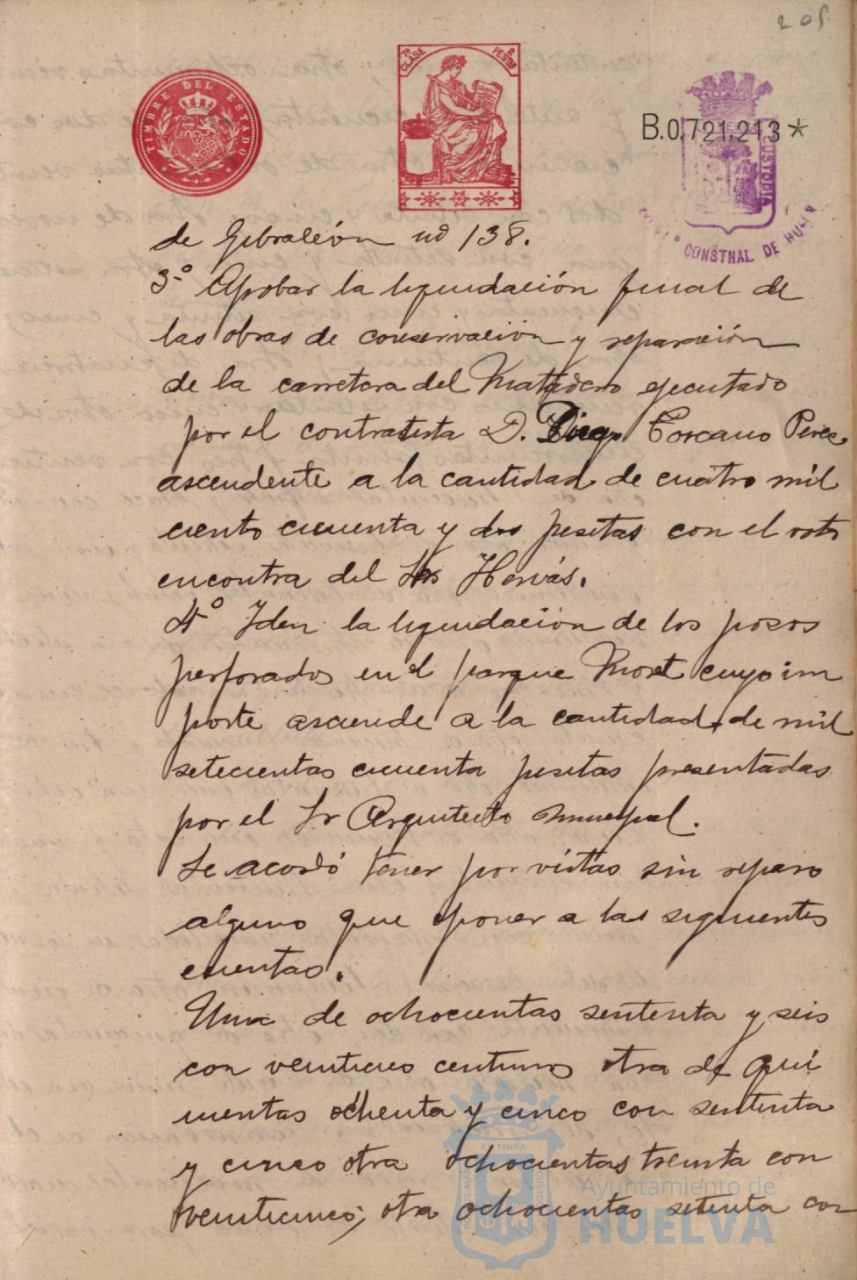 205
TIMBRE DEL ESTADO
7ª CLASE
2 PESETAS
B.0.721.213*
CUSTODIA
CONSTNAL DE HUELVA
de Gibraleón nº 138.
3º Aprobar la liquidación final de
las obras de conservación y reparación
de la carretera del Matadero ejecutado
por el contratista D. Diego Toscano Perez
ascendente a la cantidad de cuatro mil
ciento cicuenta y dos pesetas con el voto
encontra del Sr Hervás.
4º Iden la liquidación de los posos
perforados en el parque Moret cuyo im
porte asciende a la cantidad de mil
setecientas cicuenta pesetas presentadas
por el Sr Arquitecto Municipal.
Se acordó tener por vistas sin reparo
alguno que oponer a las siguientes
cuentas.
Una de ochocientas sententa y seis
con veinticinco centimos otra de qui
nientas ochenta y cinco con sententa
y cinco otra ochocientas treinta con
veinticinco; otra ochocientas setenta con
Ayuntamiento de
HUELVA